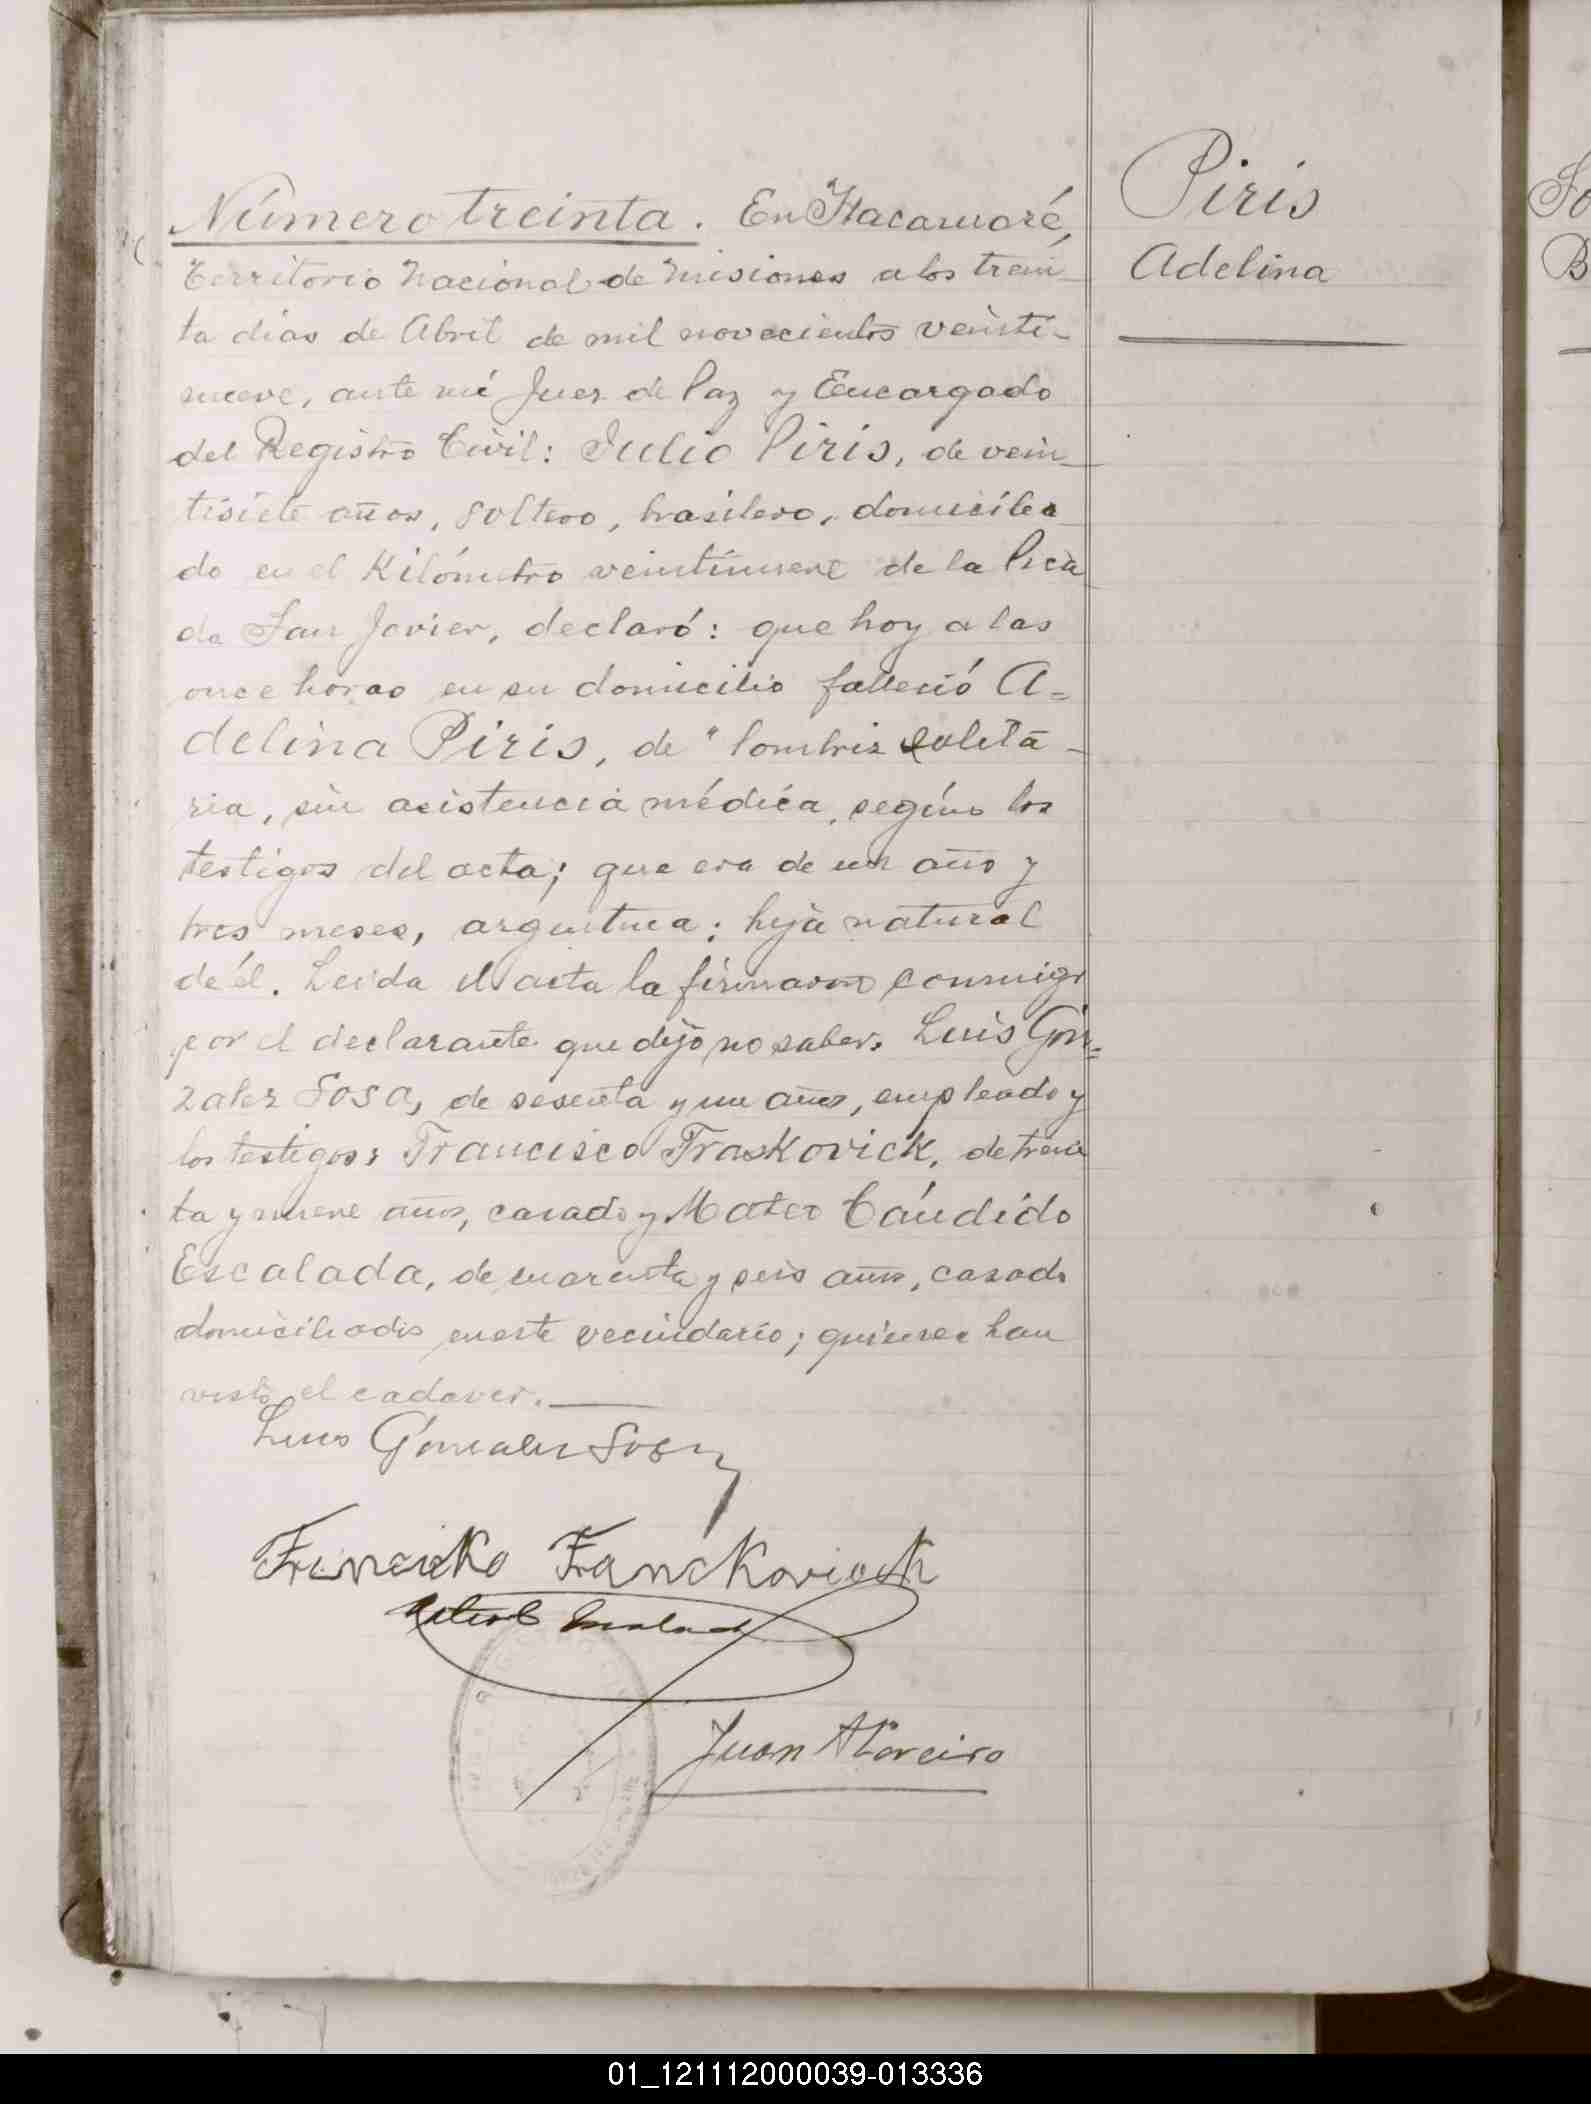 Piris
Adelina
Número treinta. En Itacaruaré,
Territorio Nacional de Misiones a los trein
ta dias de Abril de mil novecientos veinti-
nueve, ante mí Juez de Paz y Encargado
del Registro Civil: Julio Piris, de vein
tisiete años, soltero, brasilero, domicilia
do en el Kilómetro veintinueve de la Pica
da San Javier, declaró: que hoy a las
once horas en su domicilio falleció A=
delina Piris, de "lombriz solita-
ria, sin asistencia médica, según los
testigos del acta; que era de un año y
tres meses, argentina; hija natural
de él. Leida el acta la firmaron conmigo
por el declarante que dijo no saber, Luis Gon=
zalez Sosa, de sesenta y un años, empleado y
los testigos: Francisco Fraskovick, de trein
ta y nueve años, casado y Mateo Cándido
Escalada, de cuarenta y seis años, casado
domiciliados en este vecindario; quienes han
visto el cadaver.
Luis Gonzalez Sosa
Franciko Franckoviack
Escalada
Juan
01_121112000039-013336